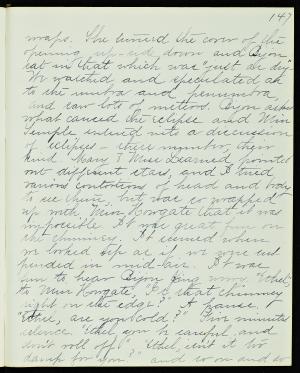 147
wraps. She turned the cover of the
opening up-side down and Byon
sat in that which was "just as dry"
We watched and speculated as
to the umbra and penumbra,
and saw lots of meteors. Byon asked
what caused the eclipse and Miss
Temple entered into a discussion
of eclipses - their number, their
kind. Mary & Miss Learned pointed
out different stars, and I tried
various contortions of head and body
to see them, but was so wrapped
up with Miss Howgate that it was
impossible. It was great fun on
the chimney. It seemed when
we looked up as if we were sus
pended in mid-air. It was
fun to hear Byon going on "Ethel,"
to Miss Howgate, "Is that chimney
right on the edge?" A pause.
"Ethel, are you cold?" Five minutes
silence. "Ethel you be careful and
don't roll off." "Ethel, isn't it too
damp for you?" and so on and so